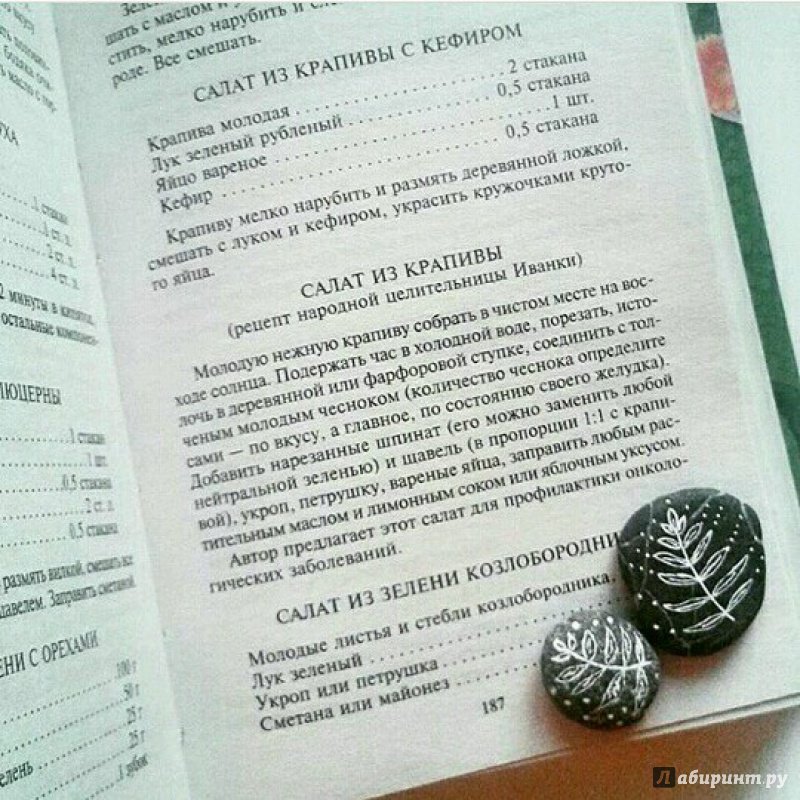 шать с маслом и
стить, мелко нарубить и
роде. Все смешать.
САЛАТ ИЗ КРАПИВЫ С КЕФИРОМ
Крапива молодая 2 стакана
Лук зеленый рубленый 0,5 стакана
Яйцо вареное 1 шт.
Кефир 0,5 стакана
Крапиву мелко нарубить и размять деревянной ложкой,
смешать с луком и кефиром, украсить кружочками круто-
го яйца.
САЛАТ ИЗ КРАПИВЫ
(рецепт народной целительницы Иванки)
Молодую нежную крапиву собрать в чистом месте на вос-
ходе солнца. Подержать час в холодной воде, порезать, исто-
лочь в деревянной или фарфоровой ступке, соединить с тол-
ченым молодым чесноком (количество чеснока определите
сами — по вкусу, а главное, по состоянию своего желудка).
Добавить нарезанные шпинат (его можно заменить любой
нейтральной зеленью) и щавель (в пропорции 1:1 с крапи-
вой), укроп, петрушку, вареные яйца, заправить любым рас-
тительным маслом и лимонным соком или яблочным уксусом.
Автор предлагает этот салат для профилактики онколо-
гических заболеваний.
САЛАТ ИЗ ЗЕЛЕНИ КОЗЛОБОРОДНИ
Молодые листья и стебли козлобородника,
Лук зеленый
Укроп или петрушка
Сметана или майонез
187
1 стакан
1 ст. л.
2 ст. л.
4 ст. л.
2 минуты в кипяток,
остальные компонен-
ЛЮЦЕРНЫ
1 стакан
1 шт.
0,5 стакана
2 ст. л.
0,5 стакана
размять вилкой, смешать все
щавелем. Заправить сметаной.
ЕНИ С ОРЕХАМИ
100 г
50 г
25 г
25 г
елень 1 зубок
Лабиринт.ру